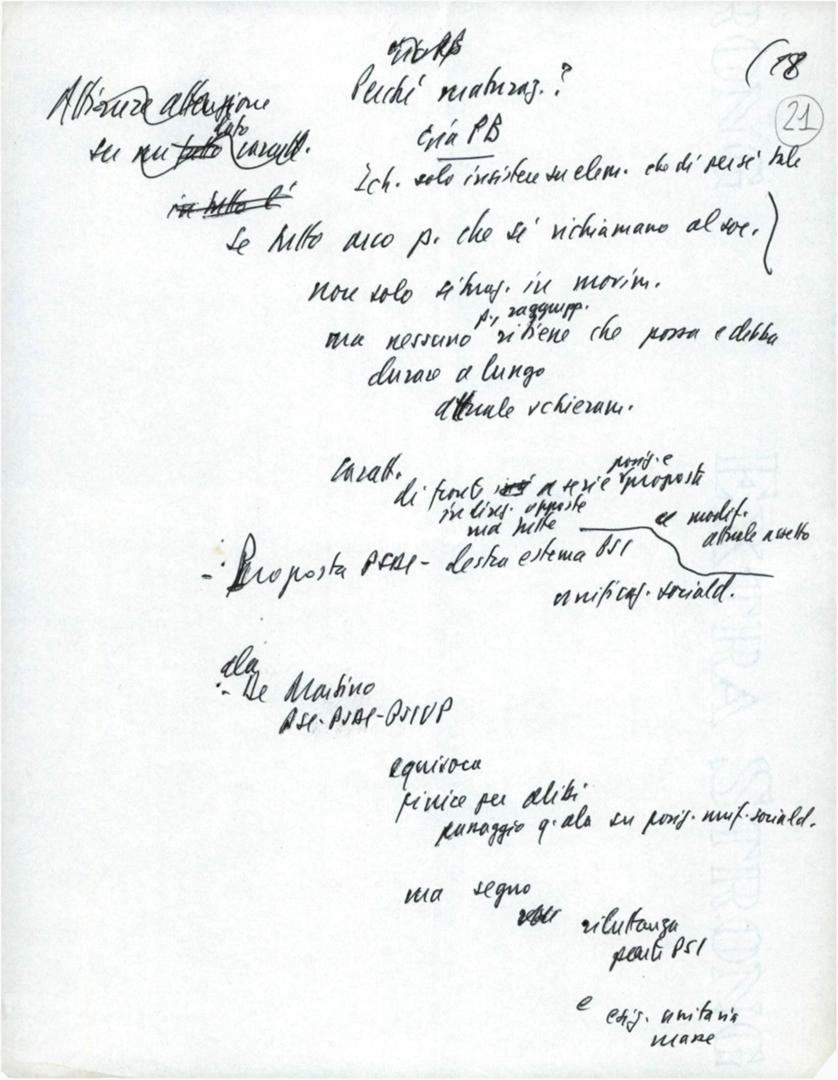 (18
21
Perché maturaz.?
Attirare attenzione
dato
su un tutto caratt.
già PB
Ich. solo insistere su elem. che di per sé tale
in tutto l'
Se tutto arco p. che si richiamano al soc.)
non solo situaz. in movim.
p., raggrupp.
ma nessuno ritiene che possa e debba
durare a lungo
attuale schieram.
Caratt.
posiz. e
di fronte a serie proposte
in direz. opposte
ma tutte
modif.
attuale assetto
- Proposta PSDI - destra estrema PSI
unificaz. sociald.
ala
- De Martino
PSI-PSDI-PSIUP
equivoca
finisce per alibi
passaggio q. ala su posiz. unif. sociald.
ma segno
riluttanza
parte PSI
e esig. unitaria
masse